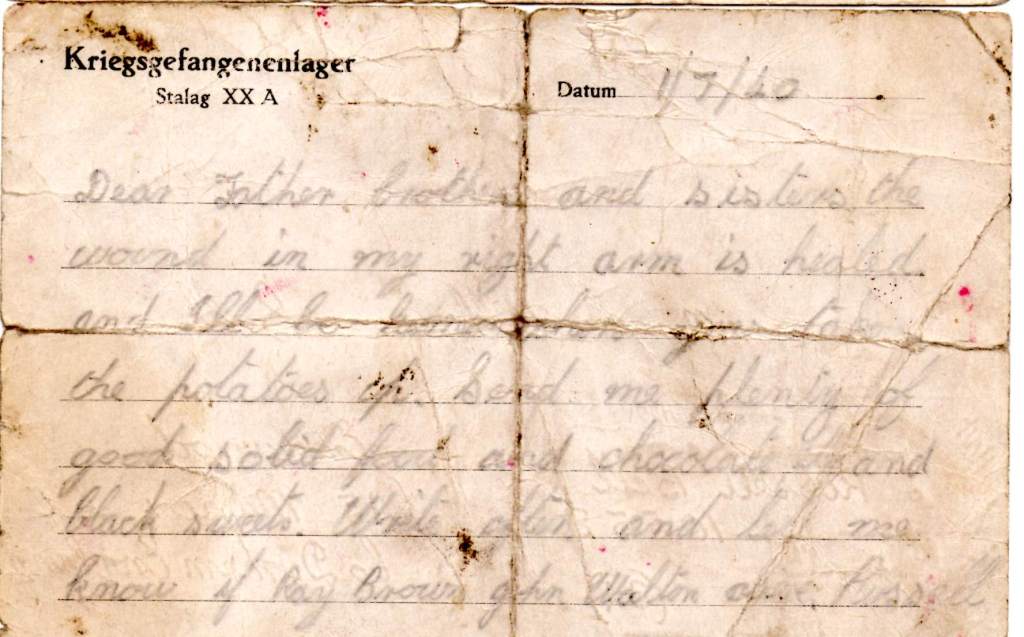 Kriegsgefangenenlager
Stalag XX A
Datum 1/7/40
Dear Father brother and sisters the
wound in my right arm is healed
and I'll be home when you take
the potatoes up. Send me plenty of
good solid food and chocolate and
black sweets. Write often and let me
know if Ray Brown John Walton